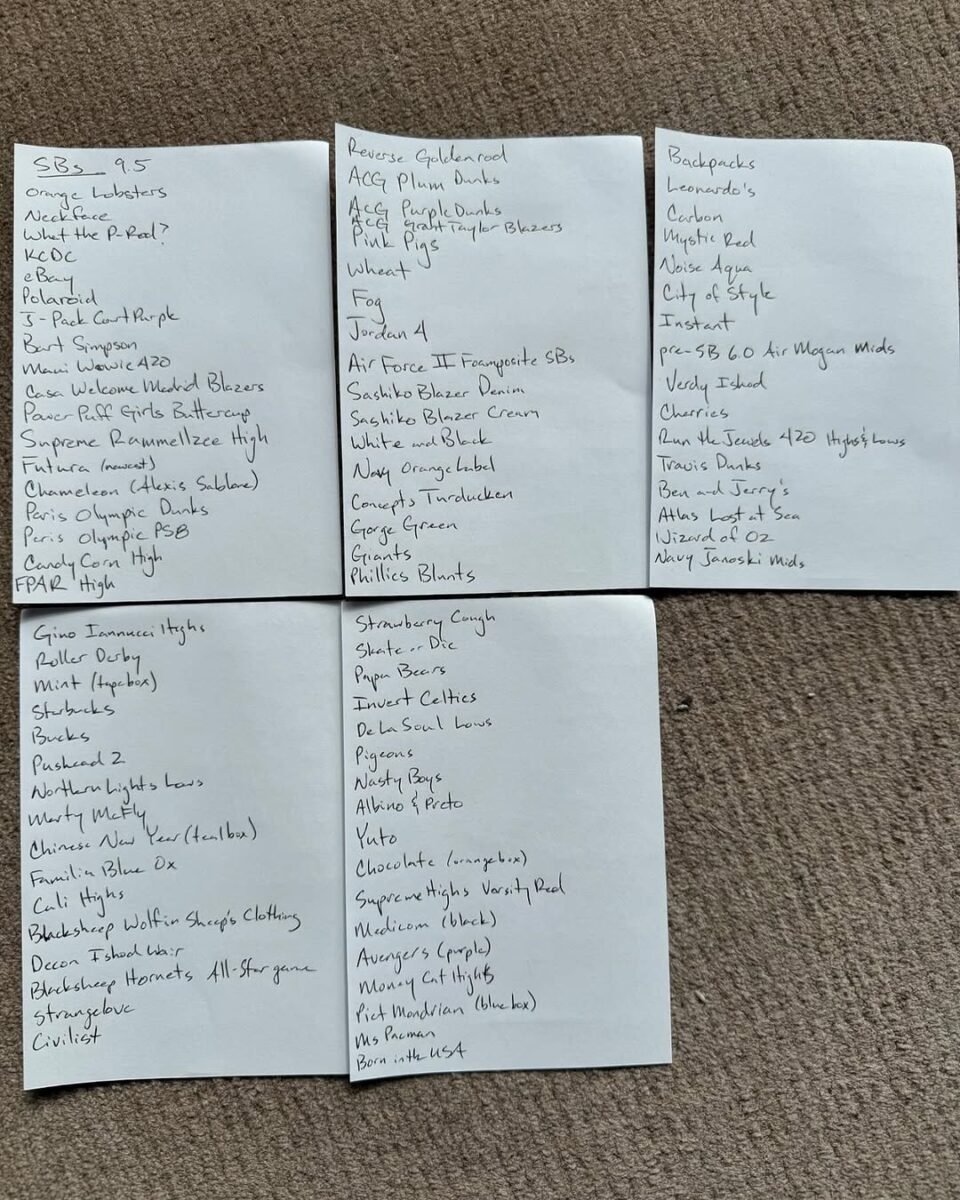 SBs 9.5
Orange Lobsters
Neckface
What the P-Rod?
KCDC
eBay
Polaroid
J-Pack Court Purple
Bart Simpson
Maui Wowie 420
Casa Welcome Madrid Blazers
Power Puff Girls Buttercup
Supreme Rammellzee High
Futura (newest)
Chameleon (Alexis Sablone)
Paris Olympic Dunks
Paris Olympic PS8
Candy Corn High
FPAR High
Reverse Goldenrod
ACG Plum Dunks
ACG Purple Dunks
ACG Grant Taylor Blazers
Pink Pigs
Wheat
Fog
Jordan 4
Air Force II Foamposite SBs
Sashiko Blazer Denim
Sashiko Blazer Cream
White and Black
Navy Orange Label
Concepts Turducken
Gorge Green
Giants
Phillies Blunts
Backpacks
Leonardo's
Carbon
Mystic Red
Noise Aqua
City of Style
Instant
pre-SB 6.0 Air Mogan Mids
Verdy Ishod
Cherries
Run the Jewels 420 Highs & Lows
Travis Dunks
Ben and Jerry's
Atlas Lost at Sea
Wizard of Oz
Navy Janoski Mids
Gino Iannucci Highs
Roller Derby
Mint (tapebox)
Starbucks
Bucks
Pushead 2
Northern Lights Lows
Marty McFly
Chinese New Year (tealbox)
Familia Blue Ox
Cali Highs
Blacksheep Wolf in Sheep's Clothing
Decon Ishod Wair
Blacksheep Hornets All-Star game
Strangelove
Civilist
Strawberry Cough
Skate or Die
Papa Bears
Invert Celtics
De La Soul Lows
Pigeons
Nasty Boys
Albino & Preto
Yuto
Chocolate (orangebox)
Supreme Highs Varsity Red
Medicom (black)
Avengers (purple)
Money Cat Highs
Piet Mondrian (blue box)
Ms Pacman
Born in the USA